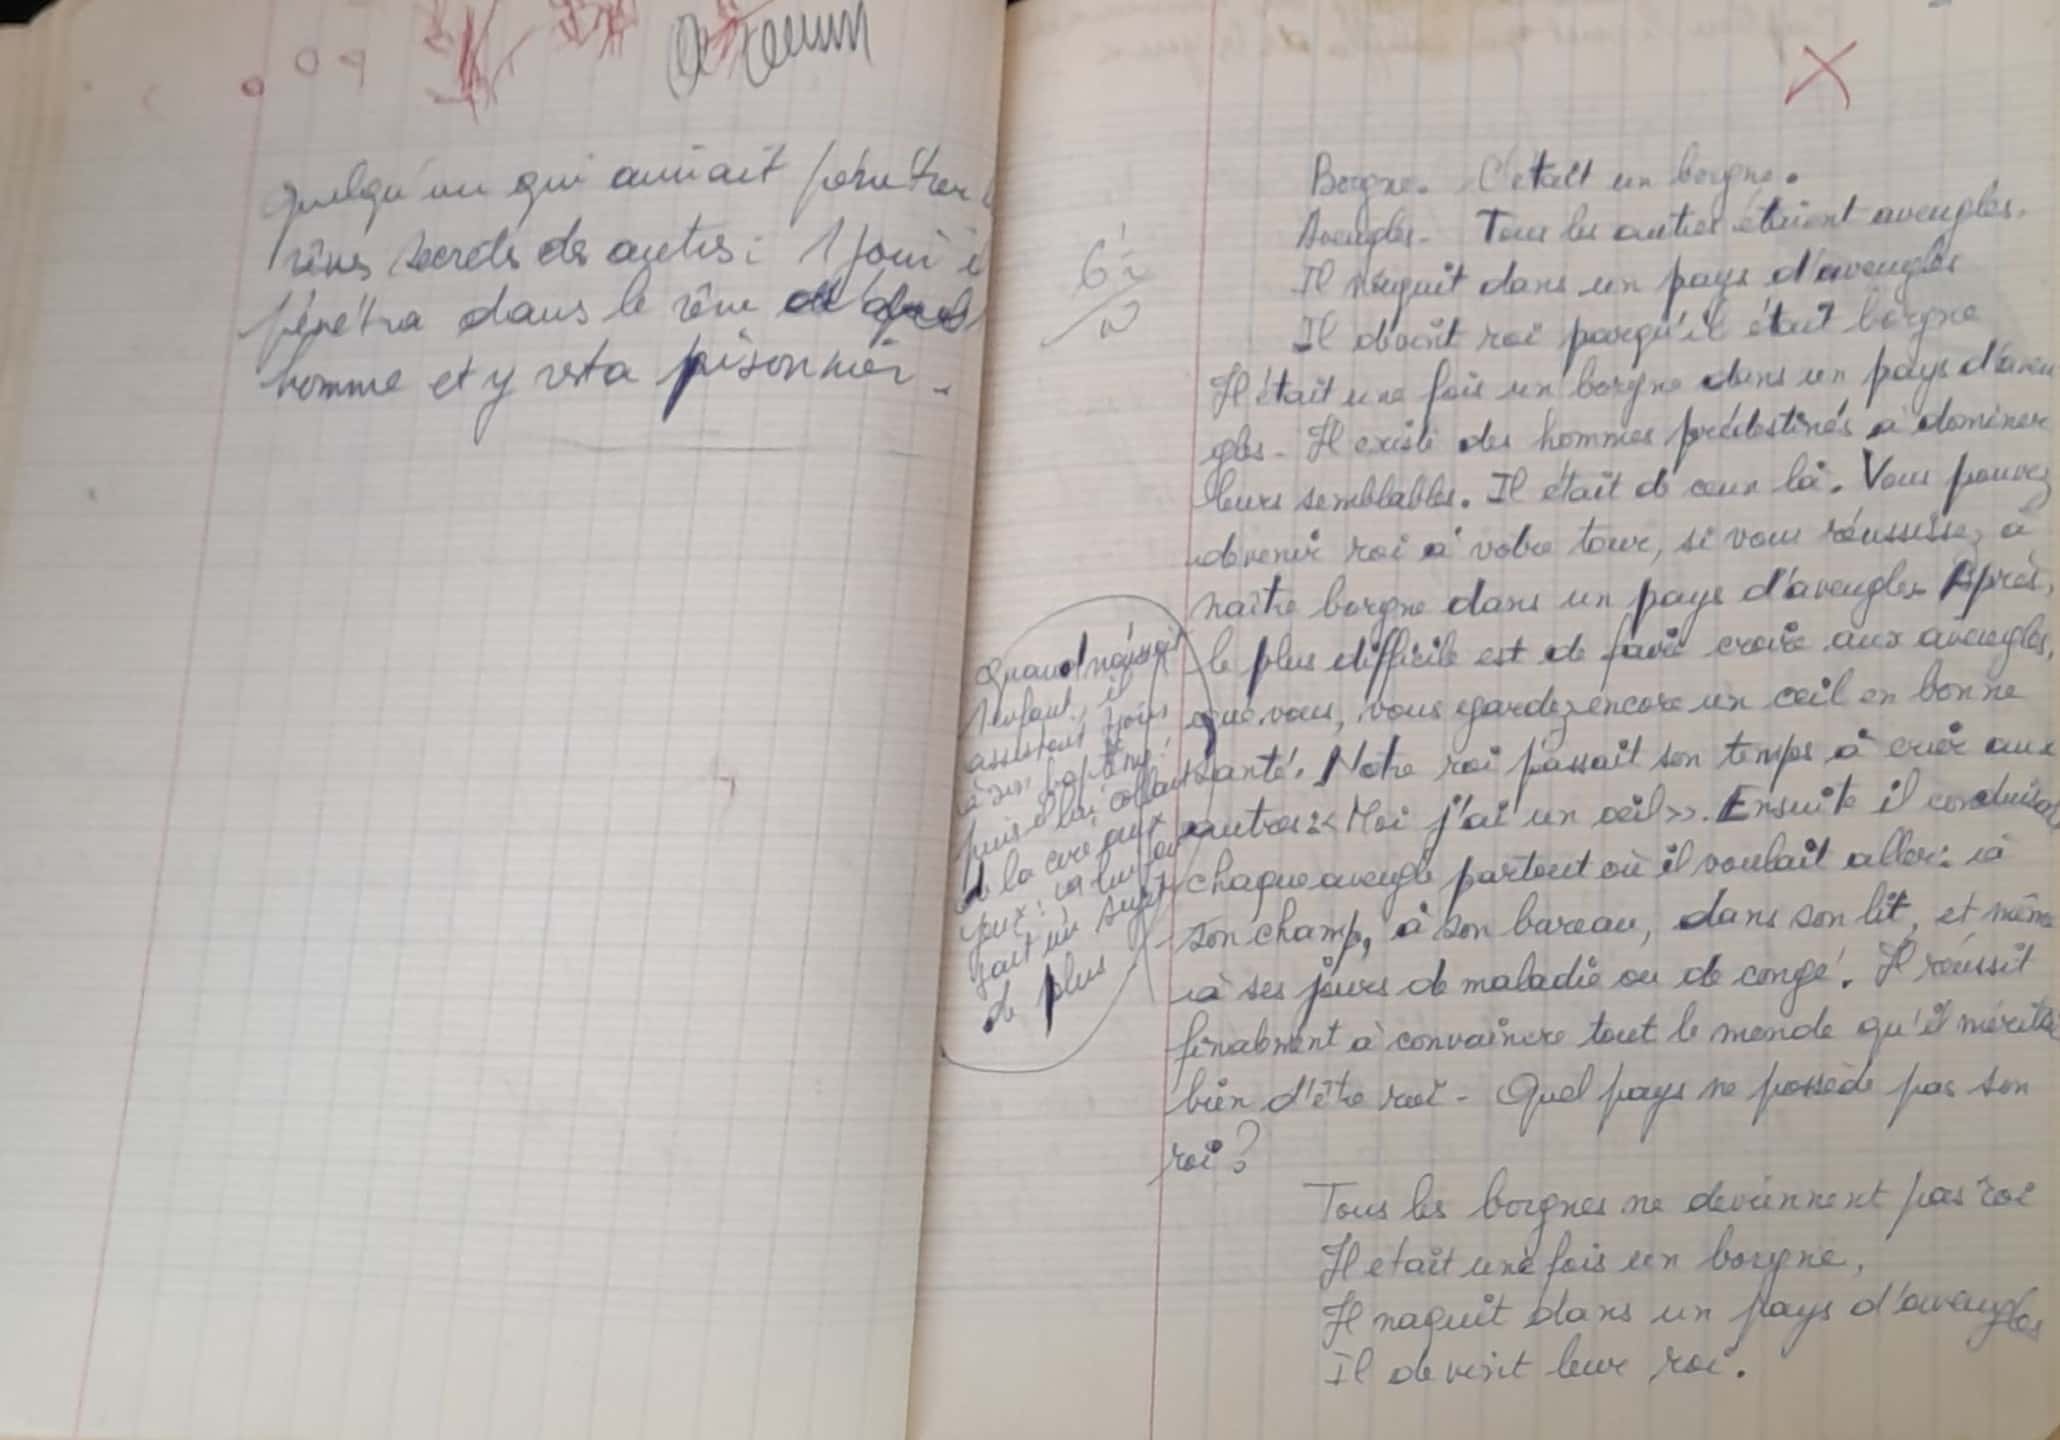 Quelqu'un qui aimait pénétrer
rêves secrets des autres : 1 jour i
pénétra dans le rêve
homme et y resta prisonnier.
Borgne. C'était un borgne.
Aveugles. Tous les autres étaient aveugles.
Il naquit dans un pays d'aveugles
Il devint roi parqu'il était borgne
Il était une fois un borgne dans un pays d'aveu
gles. Il existe des hommes prédestinés à dominer
leurs semblables. Il était de ceux là. Vous pouvez
devenir roi à votre tour, si vous réussissez à
naître borgne dans un pays d'aveugles. Après,
le plus difficile est de faire croire aux aveugles,
que vous, vous gardez encore un œil en bonne
santé. Notre roi passait son temps à crier aux
autres : « Moi j'ai un œil ». Ensuite il conduisa
chaque aveugle partout où il voulait aller : à
son champ, à son bureau, dans son lit, et même
à ses jours de maladie ou de congé. Il réussit
finalement à convaincre tout le monde qu'il mérita
bien d'être roi - Quel pays ne possède pas son
roi ?
Quand naissait
1 enfant, il
assistait
à son baptême
puis lui collait
de la cire aux
yeux :
fait un sujet
de plus
Tous les borgnes ne deviennent pas roi
Il etait une fois un borgne,
Il naquit dans un pays d'aveugles
Il devint leur roi.